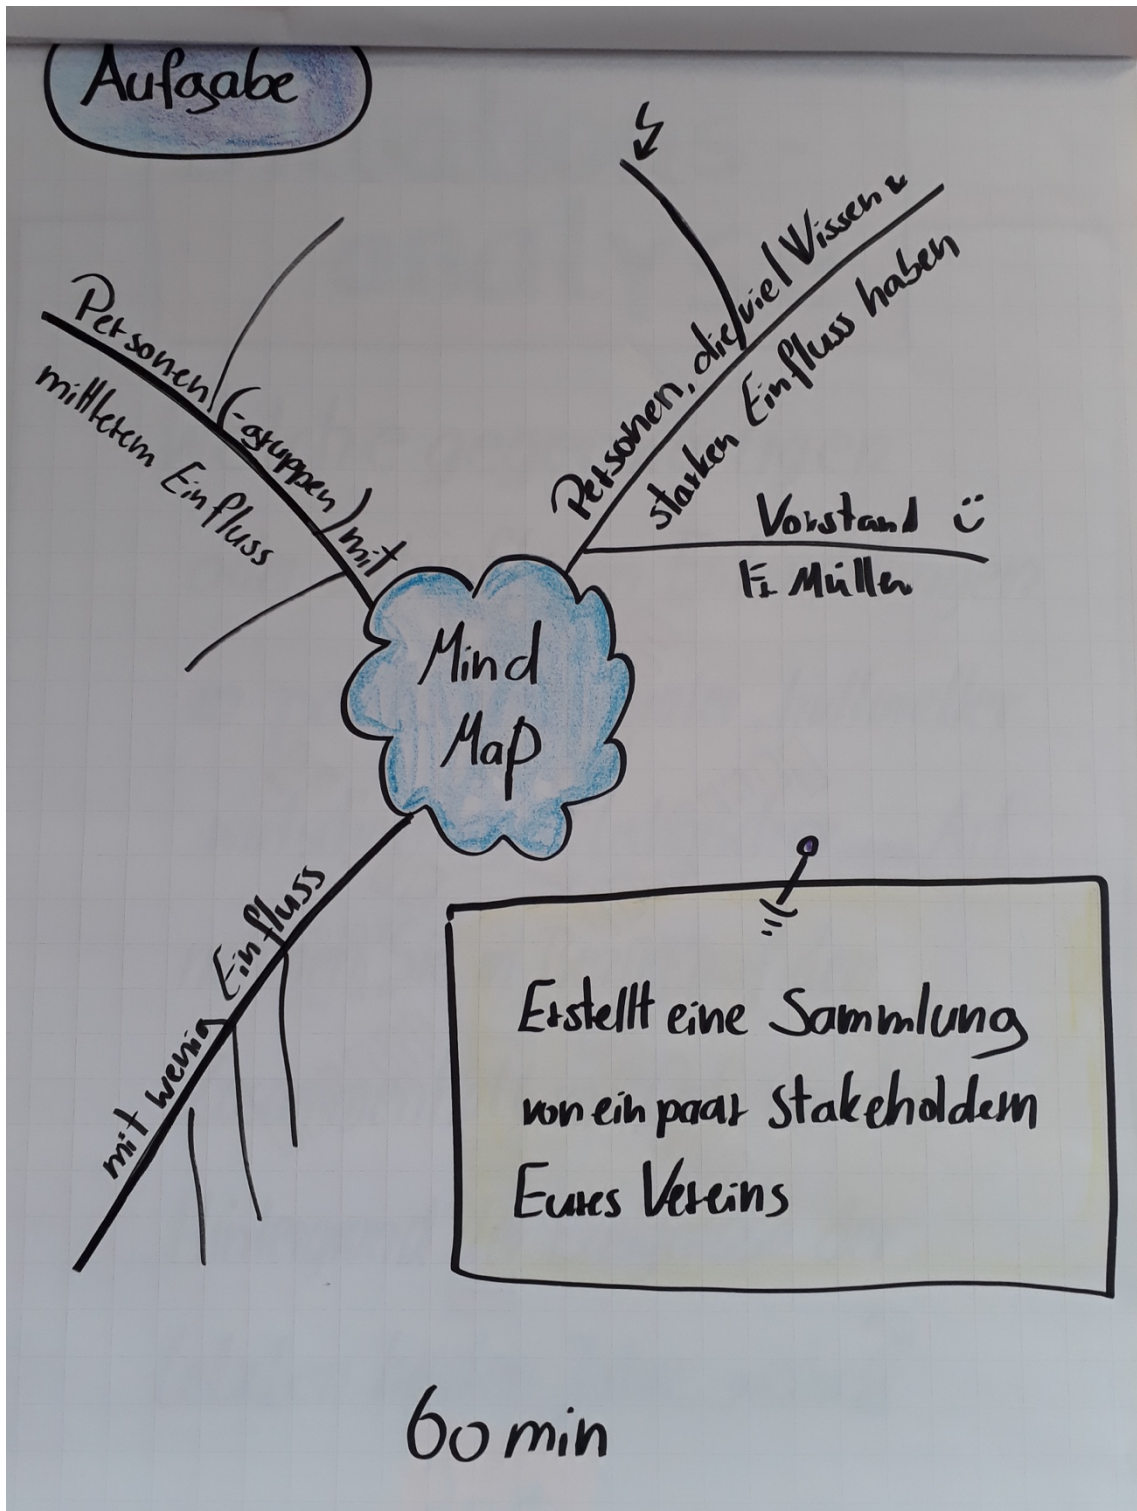 Aufgabe
Personen(-gruppen) mit
mittlerem Einfluss
Personen, die viel Wissen &
starken Einfluss haben
Vorstand
Fr Müller
Mind
Map
mit wenig Einfluss
Erstellt eine Sammlung
von ein paar Stakeholdern
Eures Vereins
60 min